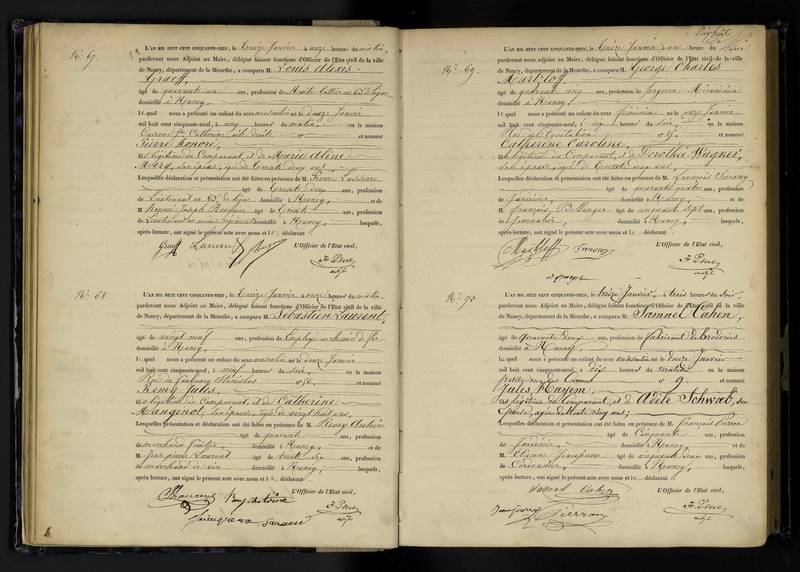 N.° 67.
L'AN MIL HUIT CENT CINQUANTE-NEUF, le treize Janvier à onze heures du matin,
pardevant nous Adjoint au Maire, délégué faisant fonctions d'Officier de l'Etat civil de la ville
de Nancy, département de la Meurthe, a comparu M. Louis Alexis
Graeff,
âgé de quarante un ans, profession de Maître Bottier au 63 de ligne
domicilié à Nancy,
lequel nous a présenté un enfant du sexe masculin né le douze Janvier
mil huit cent cinquante-neuf, à cinq heures du matin, en la maison
Caserne Ste Catherine, aile droite n° et nommé
Pierre honoré,
fils légitime du Comparant, et de Marie Aline
son épouse, âgée de trente deux ans,
Lesquelles déclaration et présentation ont été faites en présence de M. Pierre
âgé de trente deux ans, profession
de Lieutenant au 63 de ligne domicilié à Nancy, et de
M. Joseph âgé de trente ans, profession
de Lieutenant au même régiment domicilié à Nancy, lesquels,
après lecture, ont signé le présent acte avec nous et le déclarant
Graeff
L'Officier de l'Etat civil,
adjt
N.° 68
L'AN MIL HUIT CENT CINQUANTE-NEUF, le treize Janvier à onze heures du matin,
pardevant nous Adjoint au Maire, délégué faisant fonctions d'Officier de l'Etat civil de la ville
de Nancy, département de la Meurthe, a comparu M. Sébastien Laurent,
âgé de vingt neuf ans, profession de Employé au chemin de fer
domicilié à Nancy,
lequel nous a présenté un enfant du sexe masculin né le douze Janvier
mil huit cent cinquante-neuf, à neuf heures du soir, en la maison
Rue du faubourg Stanislas n° 56, et nommé
Rémy Jules,
fils légitime du Comparant, et de Catherine
Mangenot, son épouse, âgée de vingt huit ans,
Lesquelles déclaration et présentation ont été faites en présence de M. Rémy Antoine
âgé de quarante ans, profession
de marchand domicilié à Nancy, et de
M. Jean pierre Laurent âgé de trente six ans, profession
de marchand de vin domicilié à Nancy, lesquels,
après lecture, ont signé le présent acte avec nous et le déclarant
Laurent
L'Officier de l'Etat civil,
adjt
N.° 69.
L'AN MIL HUIT CENT CINQUANTE-NEUF, le treize Janvier à une heure du soir
pardevant nous Adjoint au Maire, délégué faisant fonctions d'Officier de l'Etat civil de la ville
de Nancy, département de la Meurthe, a comparu M. George Charles
Martzloff,
âgé de quarante cinq ans, profession de forgeron Mécanicien
domicilié à Nancy,
lequel nous a présenté un enfant du sexe féminin né le onze Janvier
mil huit cent cinquante-neuf, à six heures du soir, en la maison
Rue de l'Equitation n° et nommé
Catherine Caroline,
fille légitime du Comparant, et de Dorothée Wagner,
son épouse, âgée de trente ans,
Lesquelles déclaration et présentation ont été faites en présence de M. françois Simony
âgé de quarante quatre ans, profession
de Jardinier, domicilié à Nancy, et de
M. françois Bellanger âgé de cinquante sept ans, profession
de Journalier, domicilié à Nancy, lesquels,
après lecture, ont signé le présent acte avec nous et le déclarant
Martzloff Simony
L'Officier de l'Etat civil,
adjt
N.° 70
L'AN MIL HUIT CENT CINQUANTE-NEUF, le treize Janvier, à trois heures du soir,
pardevant nous Adjoint au Maire, délégué faisant fonctions d'Officier de l'Etat civil de la ville
de Nancy, département de la Meurthe, a comparu M. Samuel Cahen,
âgé de quarante deux ans, profession de fabricant de broderies
domicilié à Nancy,
lequel nous a présenté un enfant du sexe masculin né le douze Janvier
mil huit cent cinquante-neuf, à dix heures du matin, en la maison
petite rue des Carmes n° 9 et nommé
Jules Hayem,
fils légitime du Comparant, et de Adèle Schwab, son
épouse, âgée de trente cinq ans;
Lesquelles déclaration et présentation ont été faites en présence de M. françois Pierron
âgé de Cinquante ans, profession
de Jardinier, domicilié à Nancy, et de
M. Etienne âgé de cinquante deux ans, profession
de Cordonnier, domicilié à Nancy, lesquels,
après lecture, ont signé le présent acte avec nous et le déclarant
Samuel Cahen
Pierron
L'Officier de l'Etat civil,
adjt